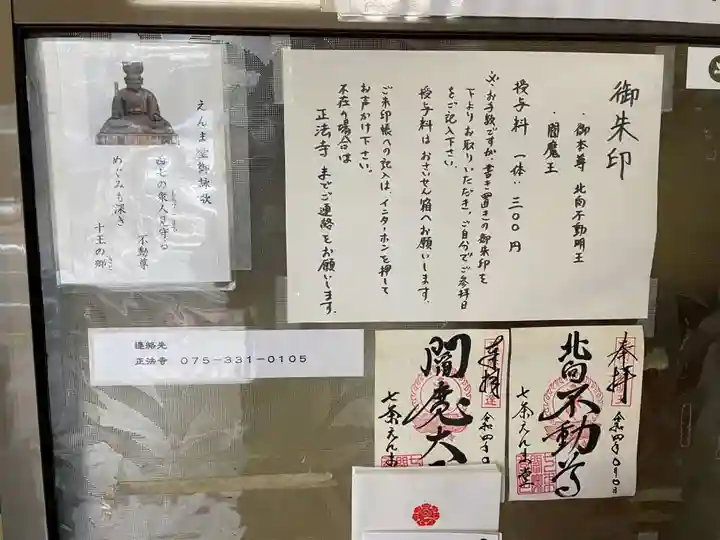 御朱印
・御本尊 北向不動明王
・閻魔王
授与料 一体:三〇〇円
※お手数ですが、書き置きの御朱印を
下よりお取りいただき、ご自分でご参拝日
をご記入下さい。
授与料はおさいせん箱へお願いします。
ご朱印帳への記入は、インターホンを押して
お声かけ下さい。
不在の場合は
正法寺までご連絡をお願いします。
えんま堂御詠歌
の衆人見守る
不動尊
めぐみも深き
十王の郷
連絡先
正法寺 075-331-0105
奉拝
北向不動尊
令和四年〇月〇日
七条えんま堂
奉拝
閻魔大
令和四年〇
七条えんま